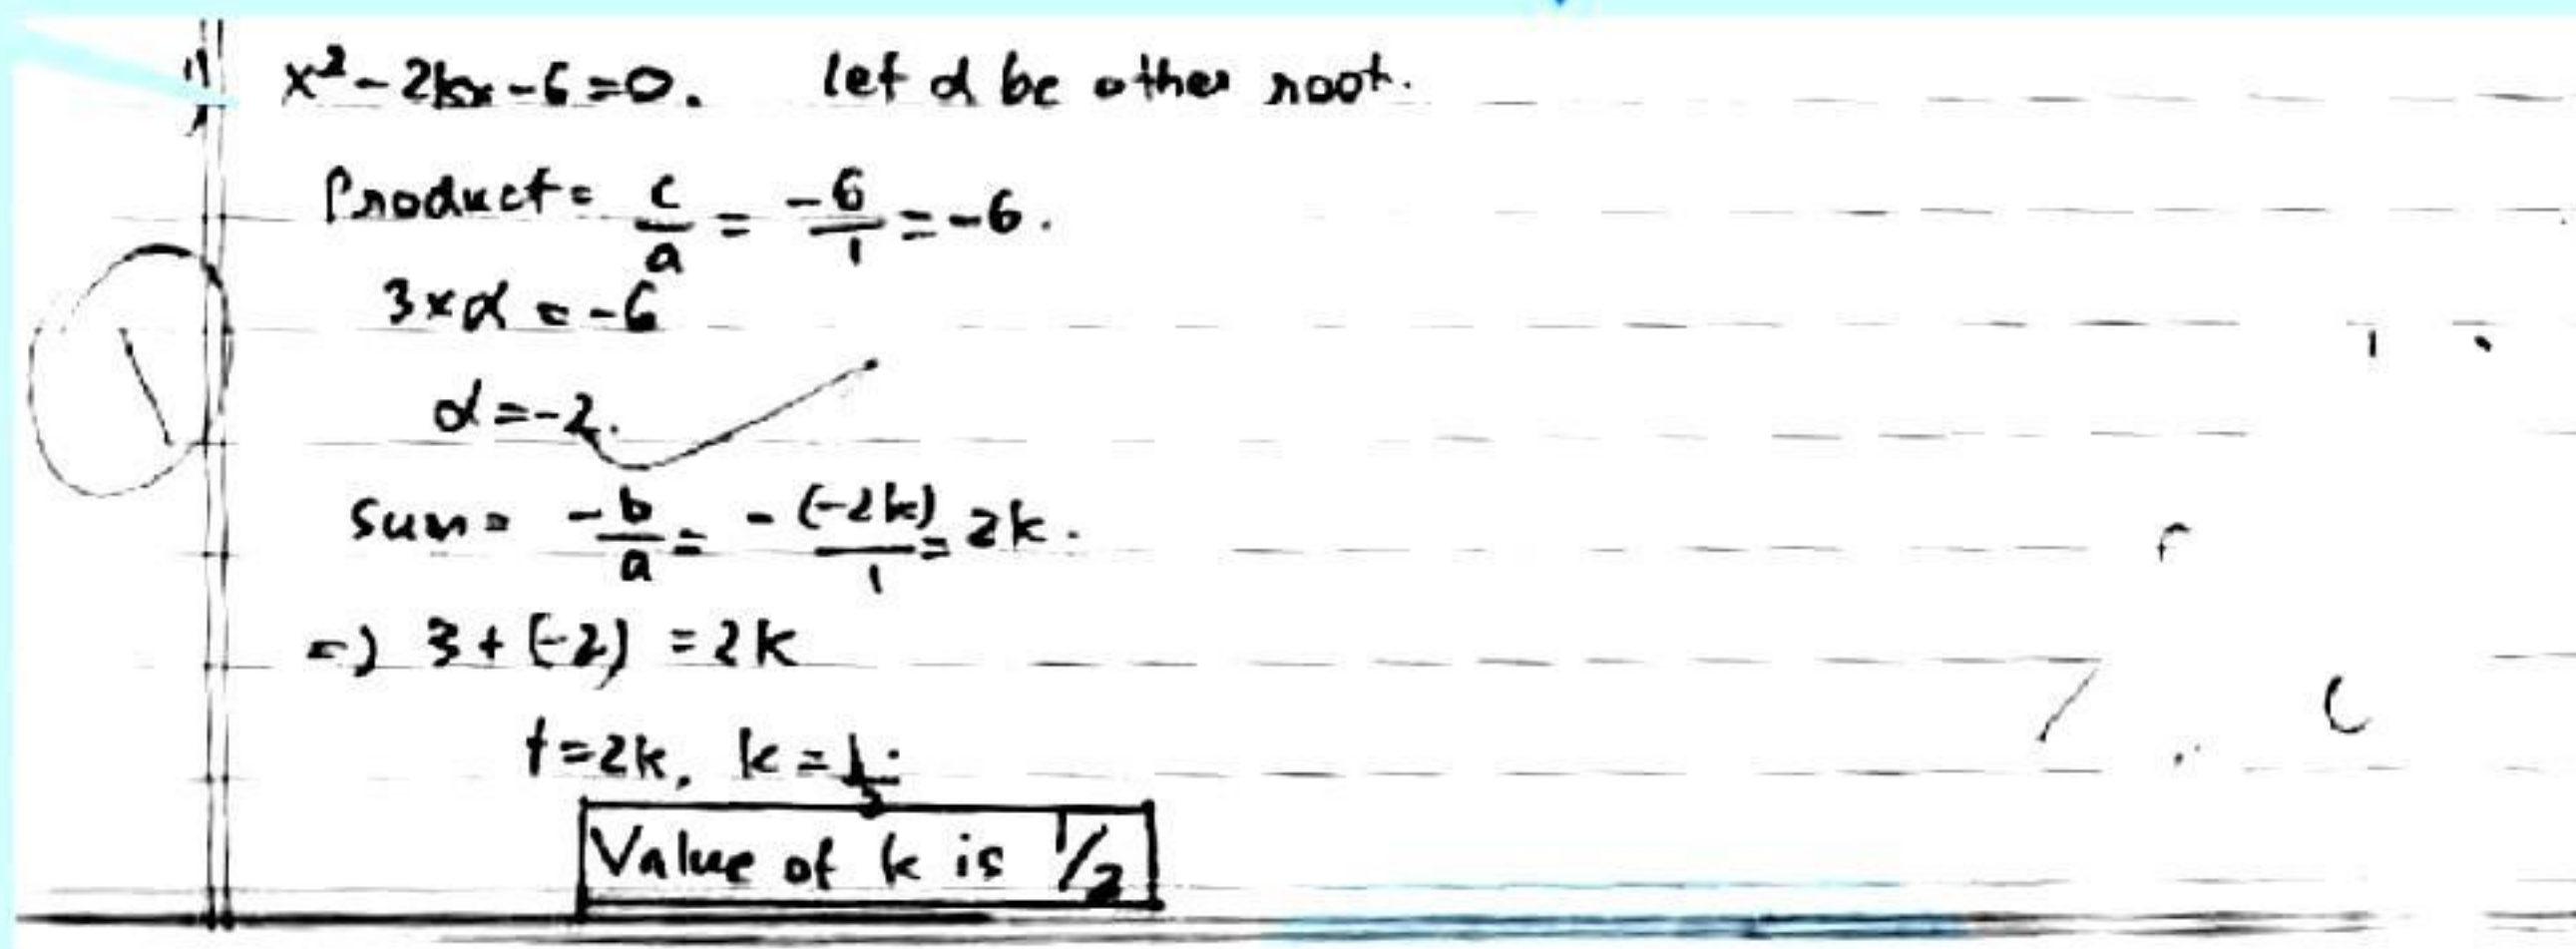 1) x² - 2kx - 6 = 0. let α be other root.
Product = c/a = -6/1 = -6.
3 × α = -6
α = -2.
Sum = -b/a = -(-2k)/1 = 2k.
=) 3 + (-2) = 2k
1 = 2k, k = 1/2.
Value of k is 1/2
1